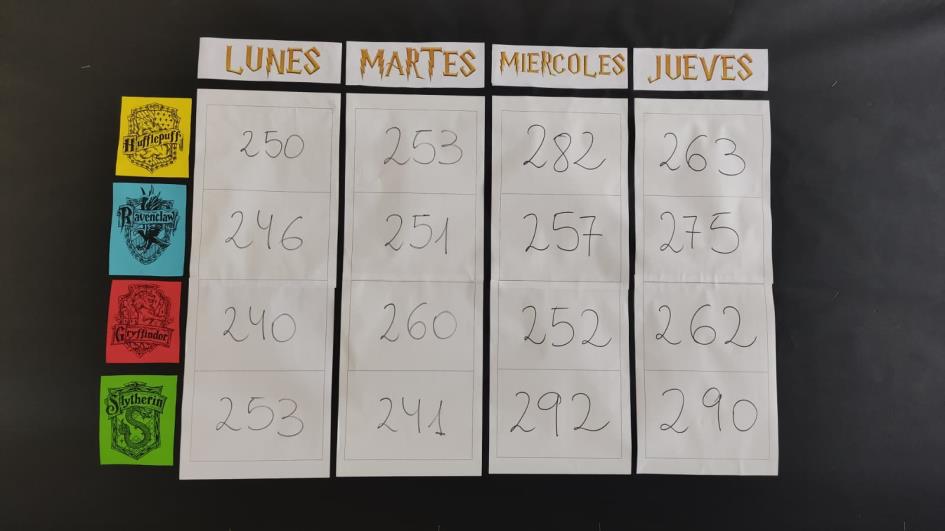 LUNES MARTES MIERCOLES JUEVES
Hufflepuff 250 253 282 263
Ravenclaw 246 251 257 275
Gryffindor 240 260 252 262
Slytherin 253 241 292 290